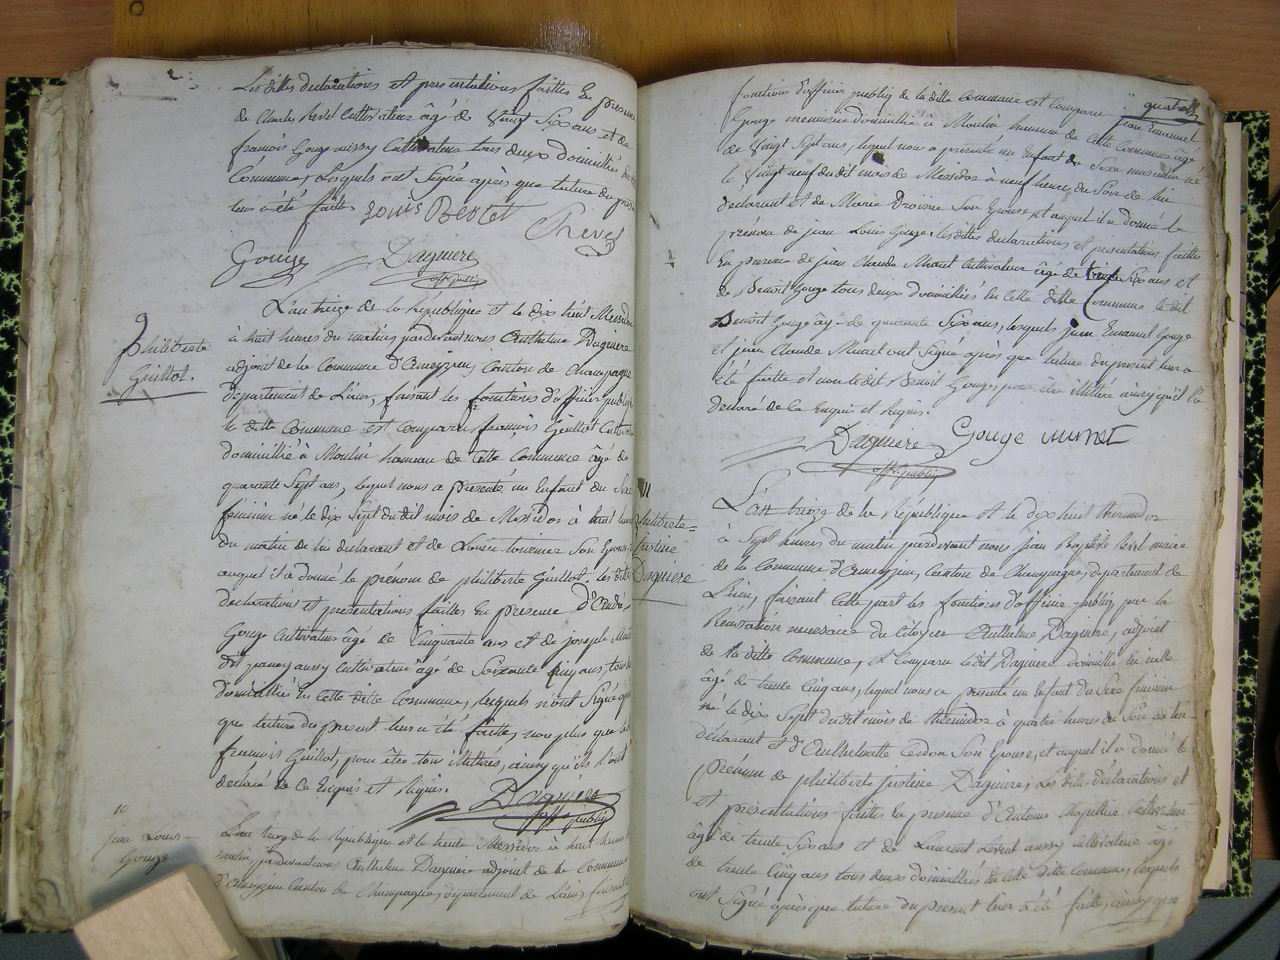 Les dittes declarations et presentations faittes En presence
de Charles Revel Cultivateur âgé de Vingt Six ans et de
françois Gouge aussy Cultivateur tous deux domiciliés
Commune, lesquels ont Signé après que lecture du présent
leur a été faitte
Louis Bertet
CRevel
Gouge
Dagniere
off. public
9
philiberte
Guillot.
L'an treize de la République et le dix huit Messidor
à huit heures du matin pardevant nous Anthelme Dagniere
adjoint de la Commune d'Ameyzieu, Canton de Champagne
département de L'ain, faisant les fonctions d'officier public
la ditte Commune est Comparu françois Guillot Cultivateur
domicilié à Moulin hameau de Cette Commune âgé de
quarante Sept ans, lequel nous a présenté un Enfant du Sexe
feminin né le dix Sept dudit mois de Messidor à huit heures
du matin de lui declarant et de Louise tournier Son Epouse
auquel il a donné le prénom de philiberte Guillot. les dittes
declarations et présentations faittes En présence D'André
Gouge Cultivateur âgé de Cinquante ans et de joseph
dit aussy Cultivateur âgé de Soixante Cinq ans, tous
domiciliés En Cette ditte Commune, lesquels n'ont Signé
que lecture du présent leur a été faitte, non plus que
francois Guillot, pour être tous illittéré, ainsy qu'ils l'ont
declaré de Ce Enquis et Requis.
Dagniere
off. public
10
jean Louis
Gouge
L'an treize de la République et le trente Messidor à huit heures
matin, pardevant nous Anthelme Dagniere adjoint de la Commune
d'Ameyzieu Canton de Champagne, département de L'ain, faisant
quatre
fonctions d'officier public de la ditte Commune est Comparu jean Emanuel
Gouge menuisier domicilié à Moulin hameau de Cette Commune âgé
de Vingt Sept ans, lequel nous a présenté un Enfant du Sexe masculin né
le Vingt neuf dudit mois de Messidor à neuf heures du Soir de lui
declarant et de Marie Son Epouse et auquel il a donné le
prénom de jean Louis Gouge. les dittes declarations et présentations faittes
En présence de jean Claude Munet Cultivateur âgé de trente Six ans et
de Benoit Gouge tous deux domiciliés En Cette ditte Commune le dit
Benoit Gouge âgé de quarante Six ans, lesquels jean Emanuel Gouge
et jean Claude Munet ont Signé après que lecture du présent leur a
été faitte et non ledit Benoit Gouge, pour être illittéré ainsy qu'il l'a
declaré de Ce Enquis et Requis.
Dagniere
Gouge
munet
off. public
11
philiberte
justine
Dagniere
L'an treize de la République et le dix huit thermidor
à Sept heures du matin pardevant nous jean Baptiste Revel maire
de la Commune d'Ameyzieu, Canton de Champagne, département de
L'ain, faisant Cette part les fonctions d'officier public, pour la
Récusation necessaire du Citoyen Anthelme Dagniere, adjoint
de la ditte Commune, est Comparu ledit Dagniere domicilié En icelle
âgé de trente Cinq ans, lequel nous a présenté un Enfant du Sexe feminin
né le dix Sept dudit mois de thermidor à quatre heures du Soir de lui
declarant et d'Anthelmette Son Epouse, et auquel il a donné le
prénom de philiberte justine Dagniere, Les dittes declarations et
et présentations faittes En présence d'Antoine Chapelier Cultivateur
âgé de trente Six ans et de Laurent aussy Cultivateur âgé
de trente Cinq ans tous deux domiciliés En Cette ditte Commune, lesquels
ont Signé après que lecture du présent leur a été faitte, ainsy que